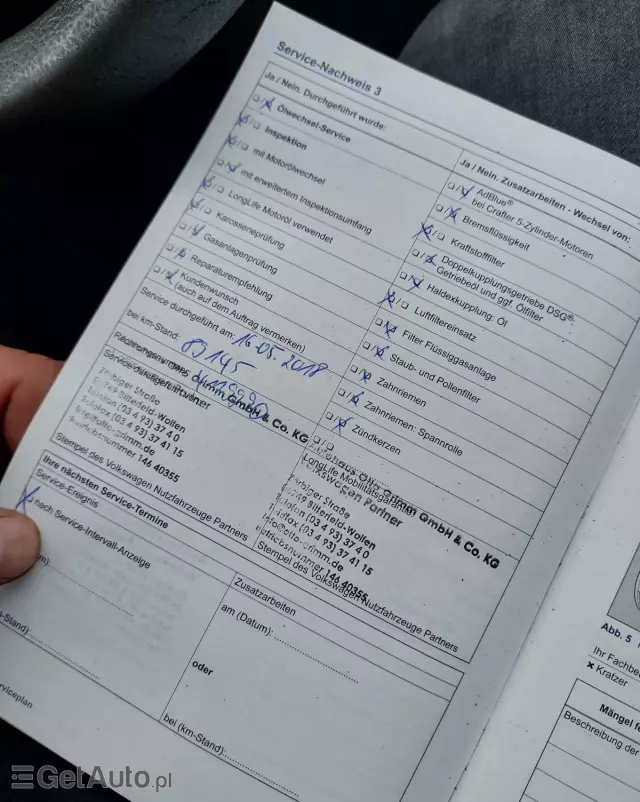 Service-Nachweis 3
Ja / Nein. Durchgeführt wurde:
Ölwechsel-Service
Inspektion
mit Motorölwechsel
mit erweitertem Inspektionsumfang
LongLife Motoröl verwendet
Karosserieprüfung
Gasanlagenprüfung
Reparaturempfehlung
Kundenwunsch
(auch auf dem Auftrag vermerken)
Service durchgeführt am: 16.05.2018
bei km-Stand: 89 145
Otto Grimm GmbH & Co. KG
06749 Bitterfeld-Wolfen
Telefon (03 4 93) 37 4 0
Telefax (03 4 93) 37 41 15
info@otto-grimm.de
Betriebsnummer 146 40355
Stempel des Volkswagen Nutzfahrzeuge Partners
Ja / Nein. Zusatzarbeiten - Wechsel von:
AdBlue®
bei Crafter 5-Zylinder-Motoren
Bremsflüssigkeit
Kraftstofffilter
Doppelkupplungsgetriebe DSG®:
Getriebeöl und ggf. Ölfilter
Haldexkupplung: Öl
Luftfiltereinsatz
Filter Flüssiggasanlage
Staub- und Pollenfilter
Zahnriemen
Zahnriemen: Spannrolle
Zündkerzen
LongLife Mobilitätsgarantie
Autohaus Otto Grimm GmbH & Co. KG
Volkswagen Partner
06749 Bitterfeld-Wolfen
Telefon (03 4 93) 37 4 0
Telefax (03 4 93) 37 41 15
info@otto-grimm.de
Betriebsnummer 146 40355
Stempel des Volkswagen Nutzfahrzeuge Partners
Ihre nächsten Service-Termine
Service-Ereignis
nach Service-Intervall-Anzeige
Zusatzarbeiten
am (Datum):
oder
bei (km-Stand):
Abb. 5
x Kratzer
Beschreibung der
GetAuto.pl